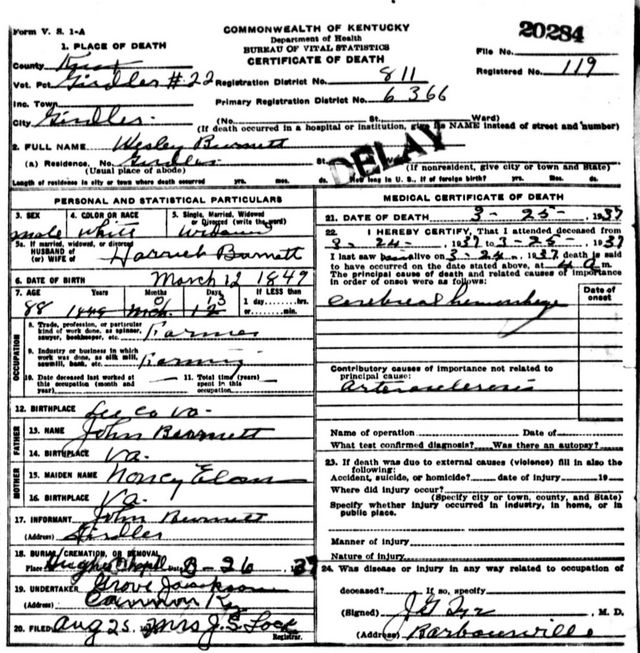 Form V. S. 1-A
COMMONWEALTH OF KENTUCKY
Department of Health
BUREAU OF VITAL STATISTICS
CERTIFICATE OF DEATH
20284
File No.
Registered No. 119
1. PLACE OF DEATH
County Knox
Vot. Pct. Girdler #22 Registration District No. 811
Inc. Town Primary Registration District No. 6366
City Girdler (No. St. Ward)
(If death occurred in a hospital or institution, give its NAME instead of street and number)
2. FULL NAME Wesley Burnett
(a) Residence. No. Girdler St.
(Usual place of abode) (If nonresident, give city or town and State)
DELAY
Length of residence in city or town where death occurred yrs. mos. ds. How long in U. S., if of foreign birth? yrs. mos. ds.
PERSONAL AND STATISTICAL PARTICULARS
3. SEX 4. COLOR OR RACE 5. Single, Married, Widowed or Divorced (write the word)
male White Widowed
5a. If married, widowed, or divorced
HUSBAND of
(or) WIFE of Harriett Barnett
6. DATE OF BIRTH March 12 1849
7. AGE Years Months Days If LESS than
88 0 13 1 day hrs.
1849 Mch 12 or min.
OCCUPATION
8. Trade, profession, or particular kind of work done, as spinner, sawyer, bookkeeper, etc. Farmer
9. Industry or business in which work was done, as silk mill, sawmill, bank, etc. Farming
10. Date deceased last worked at this occupation (month and year)
11. Total time (years) spent in this occupation.
12. BIRTHPLACE Lee Co Va.
FATHER
13. NAME John Burnett
14. BIRTHPLACE Va.
MOTHER
15. MAIDEN NAME Nancy Elam
16. BIRTHPLACE Va.
17. INFORMANT John Burnett
(Address) Girdler
18. BURIAL, CREMATION, OR REMOVAL
Place Hughes Chapell Date 3-26 1937
19. UNDERTAKER Grove Jackson
(Address) Cannon Ky
20. FILED Aug 25 Mrs J. S. Lock
Registrar.
MEDICAL CERTIFICATE OF DEATH
21. DATE OF DEATH 3-25-, 1937
22. I HEREBY CERTIFY, That I attended deceased from
3-24-, 1937 to 3-25-, 1937
I last saw alive on 3-24, 1937 death is said
to have occurred on the date stated above, at 4 a m.
The principal cause of death and related causes of importance
in order of onset were as follows:
Date of onset
Cerebreal hemorrhage
Contributory causes of importance not related to
principal cause:
Arterosclerosis
Name of operation Date of
What test confirmed diagnosis? Was there an autopsy?
23. If death was due to external causes (violence) fill in also the
following:
Accident, suicide, or homicide? date of injury 19
Where did injury occur?
(Specify city or town, county, and State)
Specify whether injury occurred in industry, in home, or in
public place.
Manner of injury
Nature of injury
24. Was disease or injury in any way related to occupation of
deceased? If so, specify
(Signed) M. D.
(Address) Barbourville